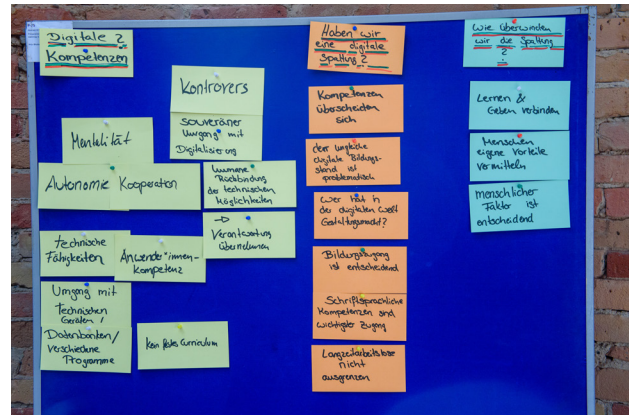 Digitale ?
Kompetenzen
Kontrovers
souveräner
Umgang mit
Digitalisierung
Mentalität
Autonomie
Kooperation
humane
Rückbindung
der technischen
Möglichkeiten
→
Verantwortung
übernehmen
technische
Fähigkeiten
Anwender*innen-
kompetenz
Umgang mit
technischen
Geräten /
Datenbanken/
verschiedene
Programme
Kein festes Curriculum
Haben wir
eine digitale
Spaltung ?
Kompetenzen
überscheiden
sich
der ungleiche
digitale Bildungs-
stand ist
problematisch
Wer hat in
der digitalen Welt
Gestaltungsmacht?
Bildungszugang
ist entscheidend
Schriftsprachliche
Kompetenzen sind
wichtigster Zugang
Langzeitarbeitslose
nicht
ausgrenzen
Wie überwinden
wir die Spaltung
?
Lernen &
Geben verbinden
Menschen
eigene Vorteile
vermitteln
menschlicher
Faktor ist
entscheidend